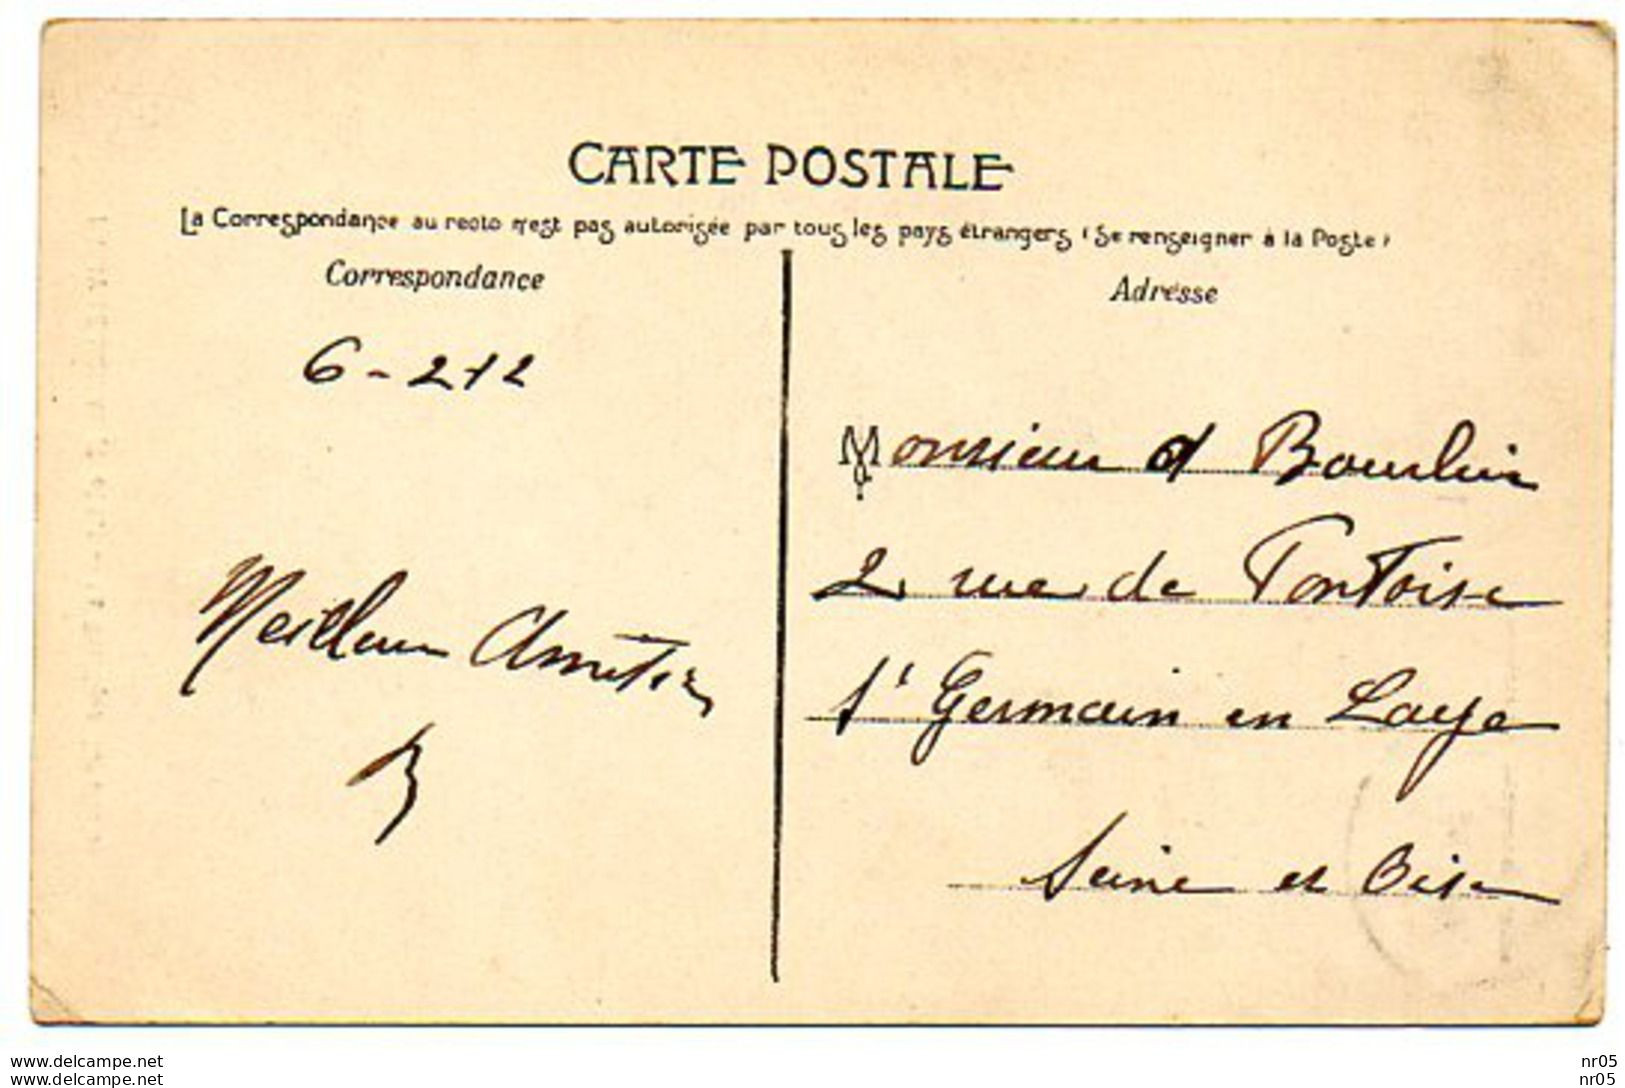 CARTE POSTALE
La Correspondance au recto n'est pas autorisée par tous les pays étrangers (Se renseigner à la Poste)
Correspondance
Adresse
6-2-12
Meilleure Amitié
B
Monsieur Bourlin
2 rue de Pontoise
St Germain en Laye
Seine et Oise
www.delcampe.net
www.delcampe.net
nr05
nr05